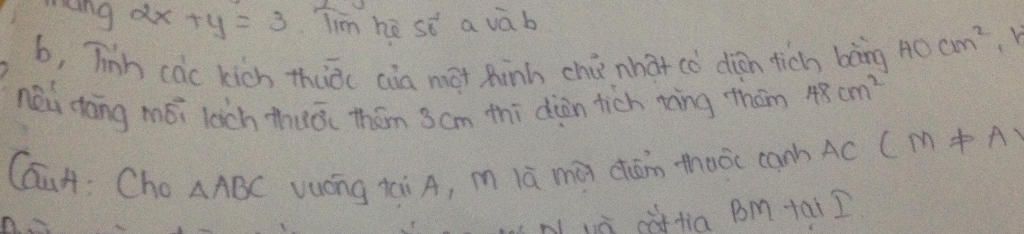 2x + y = 3. Tìm hệ số a và b
b, Tính các kích thước của một hình chữ nhật có diện tích bằng 40 cm²,
nếu tăng mỗi kích thước thêm 3 cm thì diện tích tăng thêm 48 cm²
Câu 4: Cho △ABC vuông tại A, M là một điểm thuộc cạnh AC (M ≠ A
và cắt tia BM tại I